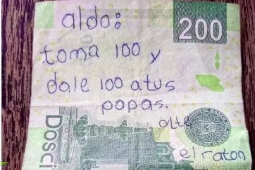 aldo:
200
toma 100 y
dale 100 a tus
papas.
atte
el raton
Dosci